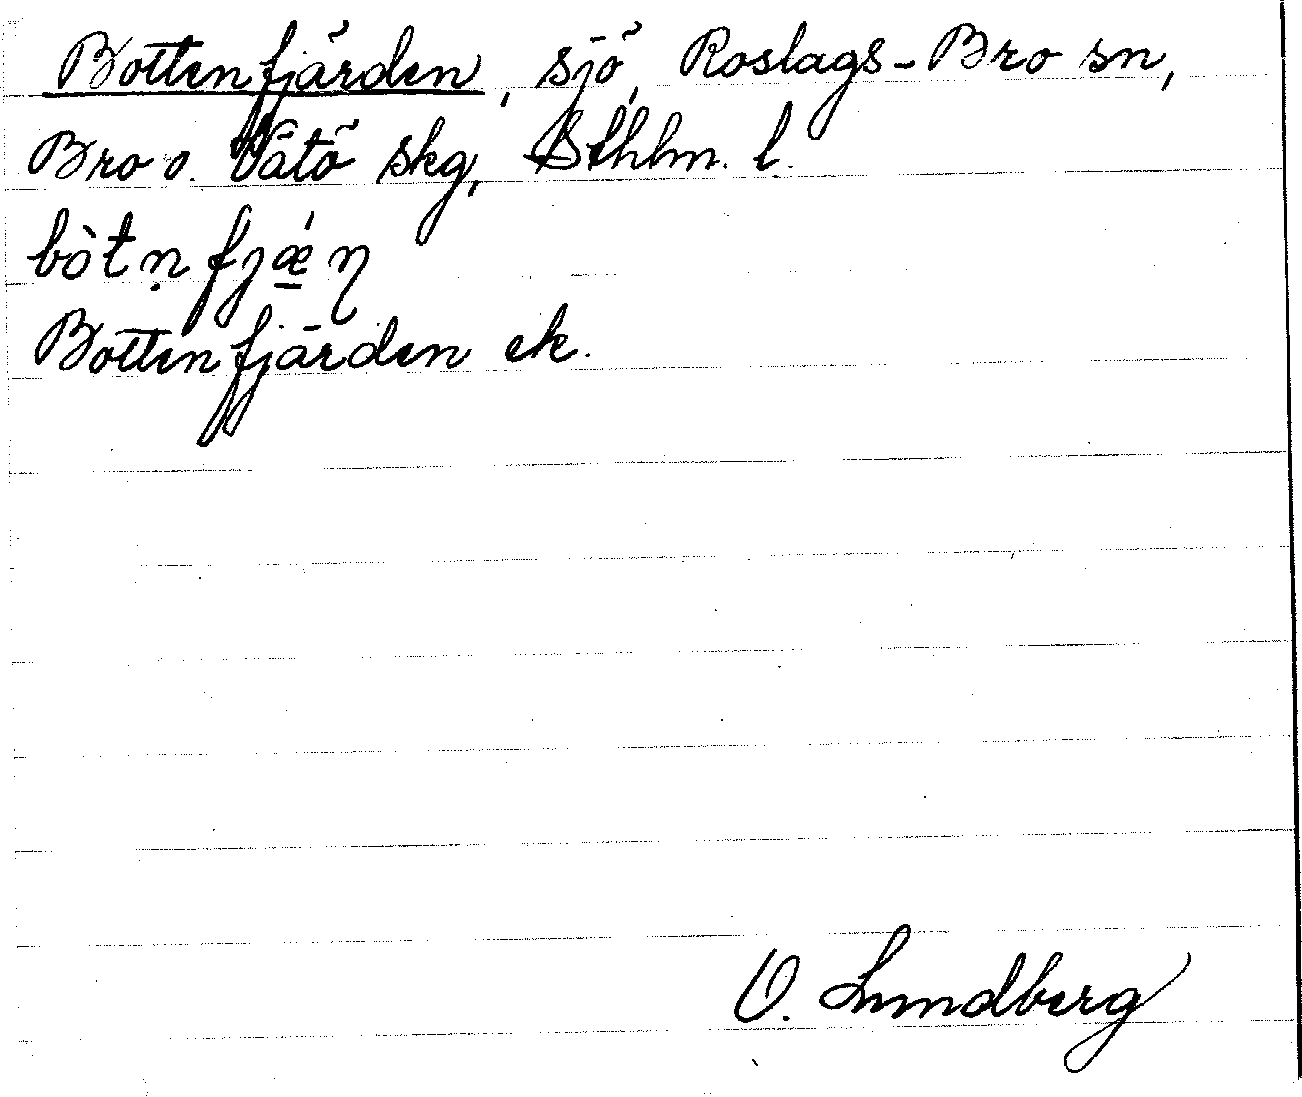 Bottenfjärden, sjö, Roslags-Bro sn,
Bro o. Vätö skg, Sthlm. l.
bòtṇfjǽ̲ŋ
Bottenfjärden ek.
O. Lundberg